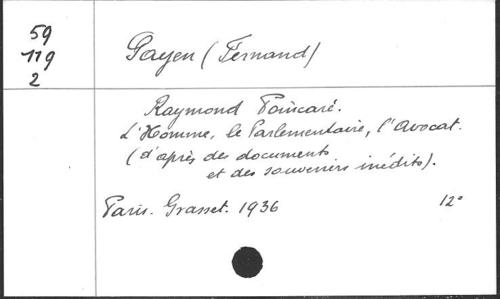 59
119
2
Payen (Fernand)
Raymond Poincaré.
L'Homme, le Parlementaire, l'Avocat.
(d'après des documents
et des souvenirs inédits).
Paris. Grasset. 1936 12°